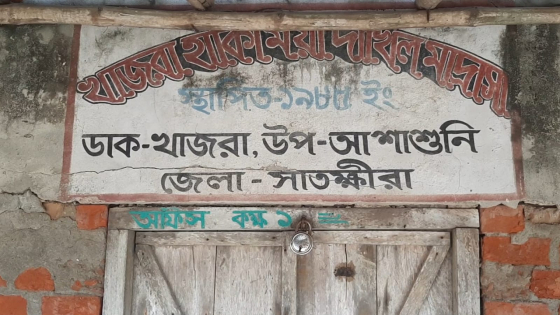 খাজরা হাকিমিয়া দাখিল মাদ্রাসা
স্থাপিত-১৯৮৫ ইং
ডাক-খাজরা, উপ-আশাশুনি
জেলা - সাতক্ষীরা
অফিস কক্ষ ১